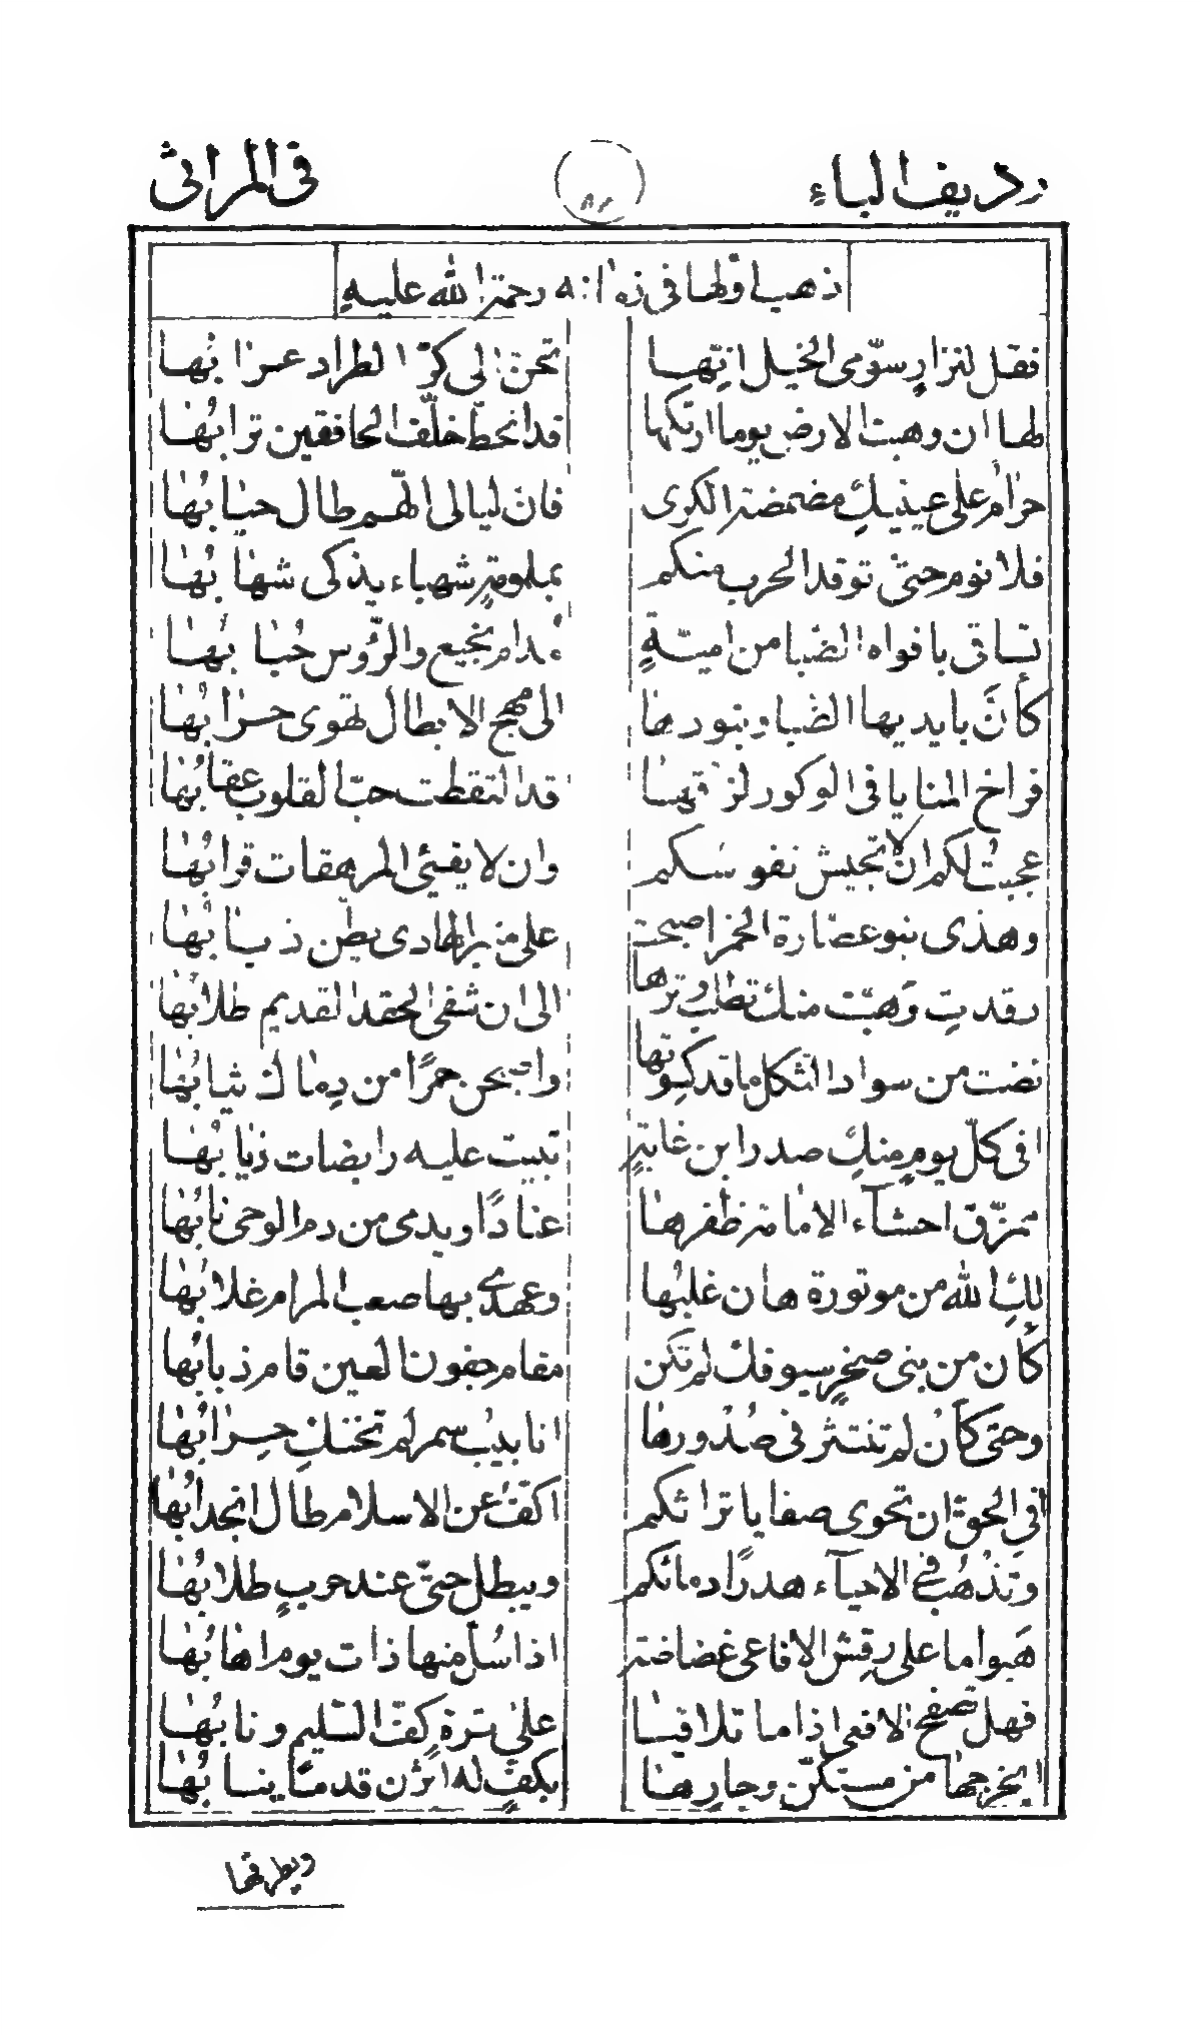 رديف الباء
٨٢
فى المراثى
ذهب اولها فى رحمة الله عليه
فقل لنزار سوّمى الخيل انّها تحنّ الى كرّ الطراد عرابها
لها ان وهبت الارض يوما ارتكها قد انحطّ خلف الخافقين ترابها
حرام على عينيك مضمضة الكرى فان ليالى الهّم طال حسابها
فلا نوم حتىّ توقد الحرب منكم بملمومة شهباء يذكى شهابها
تساقى بافواه الضبا من اميّة مدام نجيع والرّؤس حبابها
كأنّ بايديها الضبا وبنودها الى مهج الابطال تهوى حرابها
فراخ المنايا فى الوكور لزقها قد التقطت حبّ القلوب عقابها
عجبت لكم ان لا تجيش نفوسكم وان لا يفئى المرهفات قرابها
وهذى بنو عصّارة الخمر اصبحت على منبر الهادى يطنّ ذبابها
رقدت وهبّت منك تطلب وترها الى ان شفى الحقد القديم طلابها
نضت من سواد الثكل ما قد كسوتها واصبحن حمرًا من دماك ثيابها
افى كلّ يوم منك صدر ابن غابة تبيت عليه رابضات ذيابها
يمزّق احشآء الامامة ظفرها عنادًا ويدمى من دم الوحى نابها
لك الله من موتورة هان غلبها وعهدى بها صعب المرام غلابها
كأن من بنى صخر سيوفك لم تكن مقام جفون العين قام ذبابها
وحتى كأن لم تنتثر فى صدورها انابيب سمر لم تخنك حرابها
افى الحق ان تحوى صفايا تراثكم اكفّ عن الاسلام طال انجذابها
وتذهب فى الاحيآء هدرًا دمائكم ويبطل حتىّ عند حرب طلابها
هبوا ما على رقش الافاعى غضاضة اذا سلّ منها ذات يوم اهابها
فهل تصفح الافعى اذا ما تلاقيا على ترة كفّ السّليم ونابها
ايخرجها من مستكنّ وجارها بكفّ له اثّرن قدمًا ينابها
ويطرقها